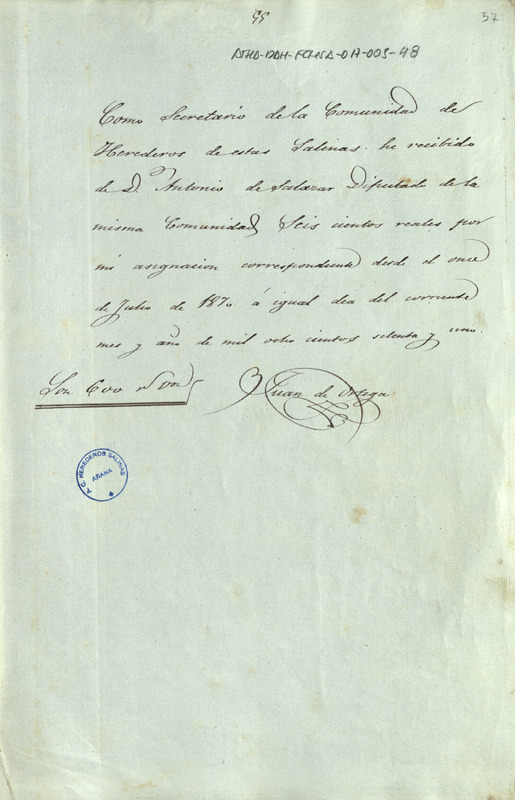 55
57
ATHA-DAH-FCHSA-017-005-48
Como Secretario de la Comunidad de
Herederos de estas Salinas he recibido
de D. Antonio de Salazar Diputado de la
misma Comunidad Seis cientos reales por
mi asignacion correspondiente desde el once
de Julio de 1870 á igual dia del corriente
mes y año de mil ocho cientos setenta y uno.
Son 600 rs von
Juan de Ortega
A. C. HEREDEROS SALINAS
AÑANA